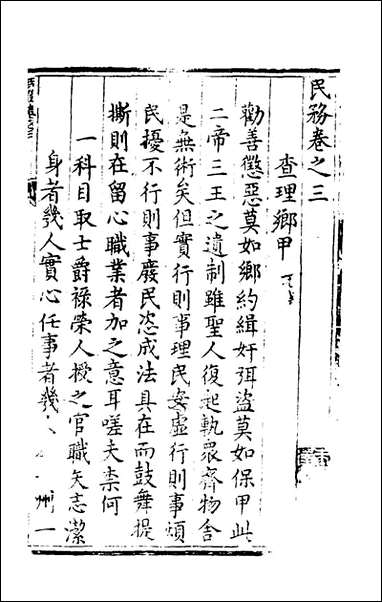 民務卷之三
查理鄉甲
勸善懲惡莫如鄉約緝奸弭盜莫如保甲此
二帝三王之遺制雖聖人復起執眾齊物舍
是無術矣但實行則事理民安虛行則事煩
民擾不行則事廢民恣成法具在而鼓舞提
撕則在留心職業者加之意耳嗟夫柰何
一科目取士爵祿榮人授之官職矢志潔
身者幾人實心任事者幾 州一